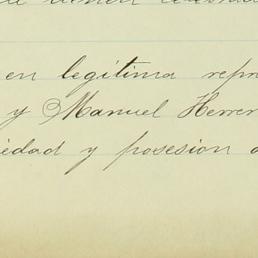 en legítima repre
y Manuel Herrer
iedad y posesion a